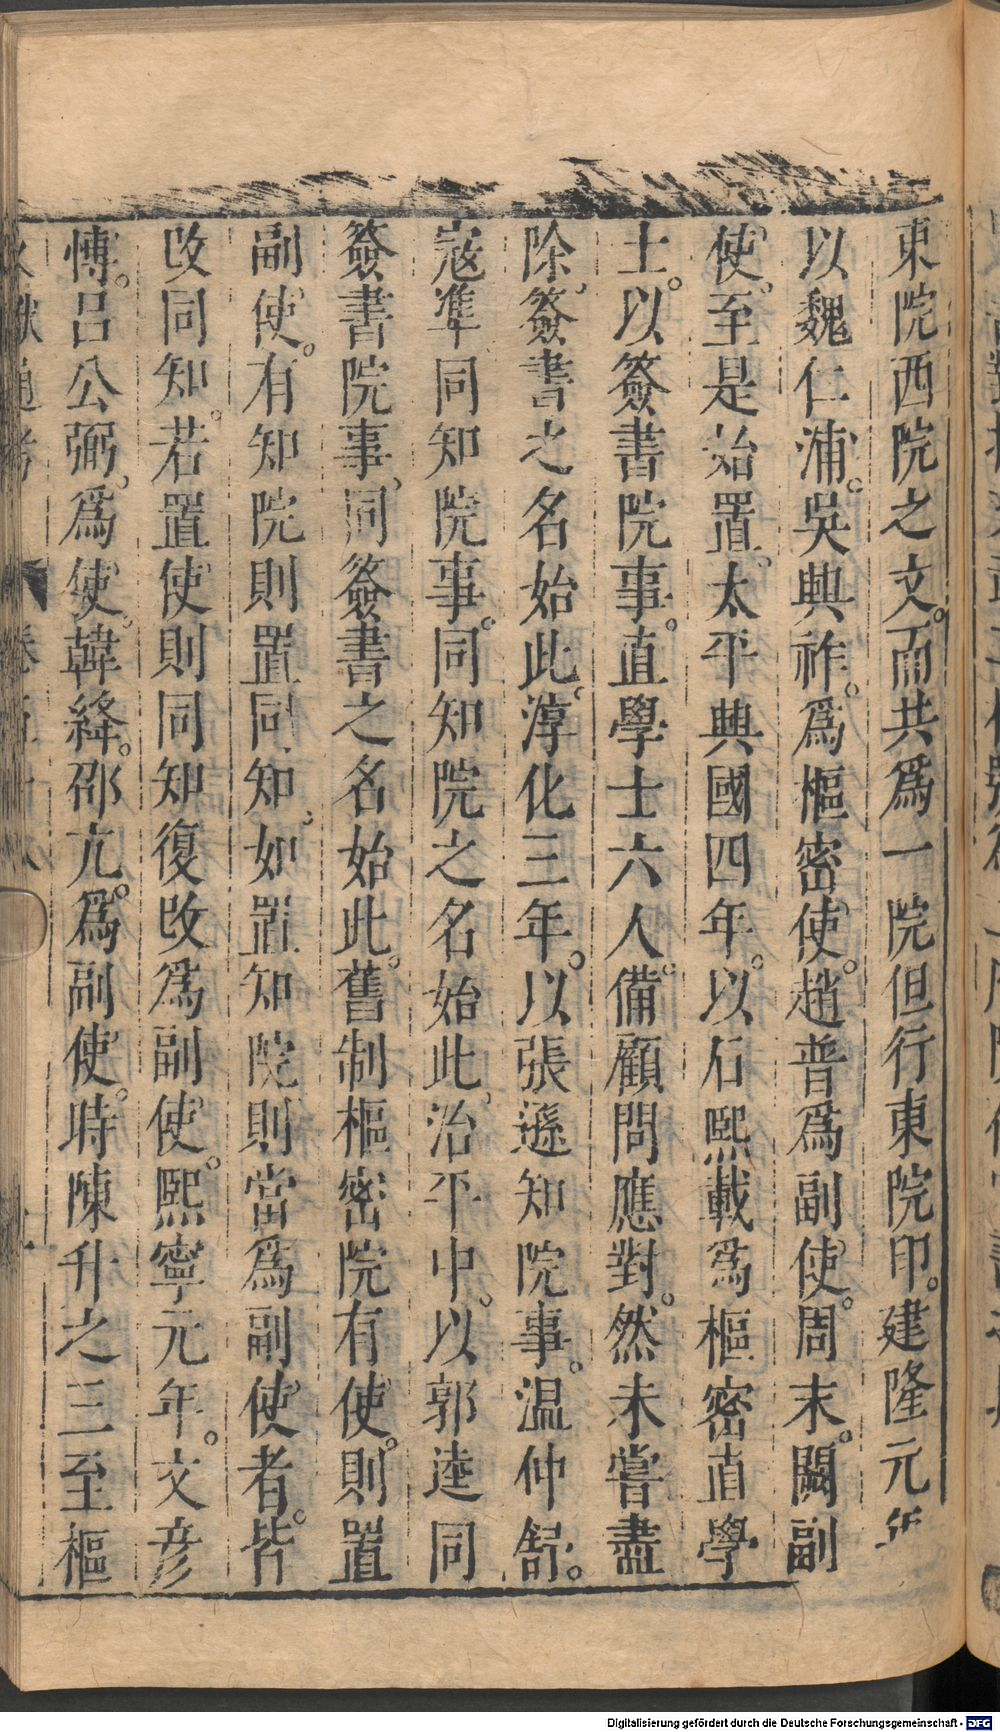 東院西院之文。而共爲一院但行東院印。建隆元年
以魏仁浦。吳興祚。爲樞密使。趙普爲副使。周末。闕副
使。至是始置。太平興國四年。以石熙載爲樞密直學
士。以簽書院事。直學士六人。備顧問應對。然未嘗盡
除。簽書之名始此。淳化三年。以張遜知院事。温仲舒。
寇準同知院事。同知院之名始此。治平中。以郭逵同
簽書院事。同簽書之名始此。舊制樞密院有使。則置
副使。有知院則置同知。如置知院則當爲副使者。皆
改同知。若置使則同知復改爲副使。熙寧元年。文彥
愽。呂公弼。爲使。韓絳。邵亢。爲副使。時陳升之三至樞
Digitalisierung gefördert durch die Deutsche Forschungsgemeinschaft - DFG